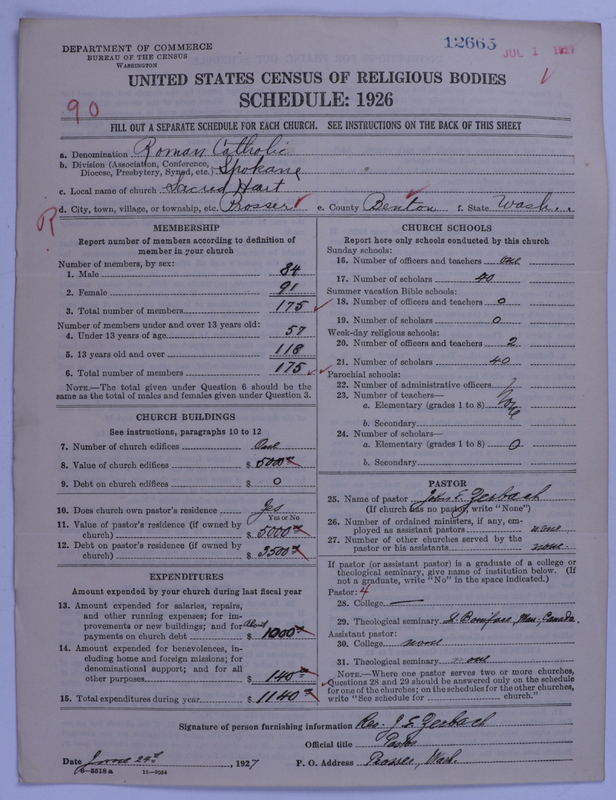 DEPARTMENT OF COMMERCE
BUREAU OF THE CENSUS
WASHINGTON
12665
JUL 1 1927
UNITED STATES CENSUS OF RELIGIOUS BODIES
SCHEDULE: 1926
90
FILL OUT A SEPARATE SCHEDULE FOR EACH CHURCH. SEE INSTRUCTIONS ON THE BACK OF THIS SHEET
a. Denomination Roman Catholic
b. Division (Association, Conference, Diocese, Presbytery, Synod, etc.) Spokane
c. Local name of church Sacred Hart
R
d. City, town, village, or township, etc. Prosser e. County Benton f. State Wash.
MEMBERSHIP
Report number of members according to definition of
member in your church
Number of members, by sex:
1. Male 84
2. Female 91
3. Total number of members 175
Number of members under and over 13 years old:
4. Under 13 years of age 57
5. 13 years old and over 118
6. Total number of members 175
NOTE.—The total given under Question 6 should be
same as the total of males and females given under Question 3.
CHURCH BUILDINGS
See instructions, paragraphs 10 to 12
7. Number of church edifices One
8. Value of church edifices $ 5000
9. Debt on church edifices $ 0
10. Does church own pastor's residence? Yes
Yes or No
11. Value of pastor's residence (if owned by
church) $ 5000
12. Debt on pastor's residence (if owned by
church) $ 3500
EXPENDITURES
Amount expended by your church during last fiscal year
13. Amount expended for salaries, repairs,
and other running expenses; for im-
provements or new buildings; and for
payments on church debt $ About 1000
14. Amount expended for benevolences, in-
cluding home and foreign missions; for
denominational support; and for all
other purposes $ 140
15. Total expenditures during year $ 1140
CHURCH SCHOOLS
Report here only schools conducted by this church
Sunday schools:
16. Number of officers and teachers one
17. Number of scholars 40
Summer vacation Bible schools:
18. Number of officers and teachers 0
19. Number of scholars 0
Week-day religious schools:
20. Number of officers and teachers 2
21. Number of scholars 40
Parochial schools:
22. Number of administrative officers
23. Number of teachers—
a. Elementary (grades 1 to 8)
b. Secondary
24. Number of scholars—
a. Elementary (grades 1 to 8) 0
b. Secondary
PASTOR
25. Name of pastor John S. Zerbach
(If church has no pastor, write "None")
26. Number of ordained ministers, if any, em-
ployed as assistant pastors none
27. Number of other churches served by the
pastor or his assistants none.
If pastor (or assistant pastor) is a graduate of a college or
theological seminary, give name of institution below. (If
not a graduate, write "No" in the space indicated.)
Pastor: 4
28. College —
29. Theological seminary St Boniface, Man., Canada.
Assistant pastor:
30. College none
31. Theological seminary none
NOTE.—Where one pastor serves two or more churches,
Questions 28 and 29 should be answered only on the schedule
for one of the churches; on the schedules for the other churches,
write "See schedule for church."
Signature of person furnishing information Rev. J. S. Zerbach
Official title Pastor
Date June 29th, 1927 P. O. Address Prosser, Wash.
6—5518a 11—9054